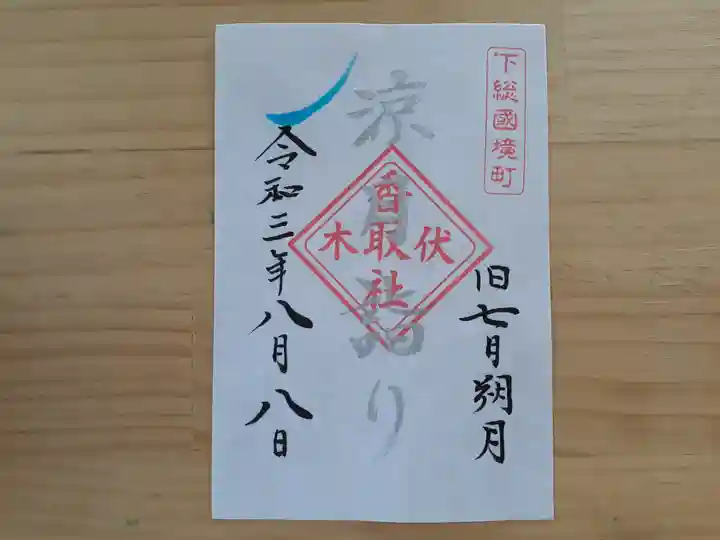 下総國境町
旧七月朔月
涼月詣り
伏木
香取社
令和三年八月八日